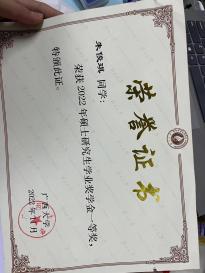 荣誉证书
朱俊琪 同学：
荣获2022年硕士研究生学业奖学金一等奖，
特颁此证。
广西大学
2022年11月